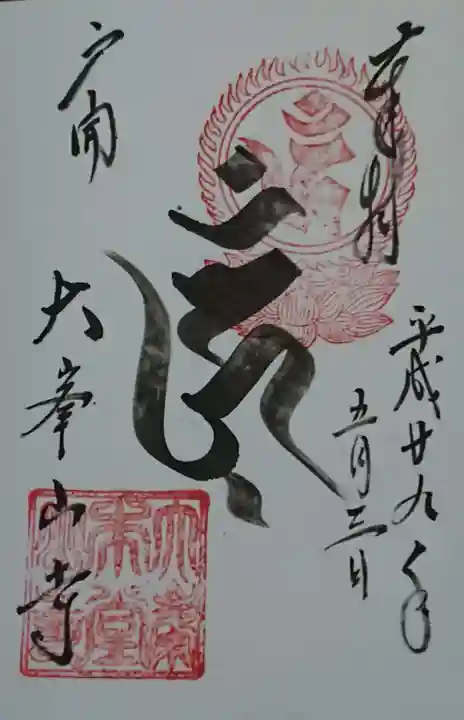 奉拝
平成廿九年
五月三日
戸開
大峯山寺